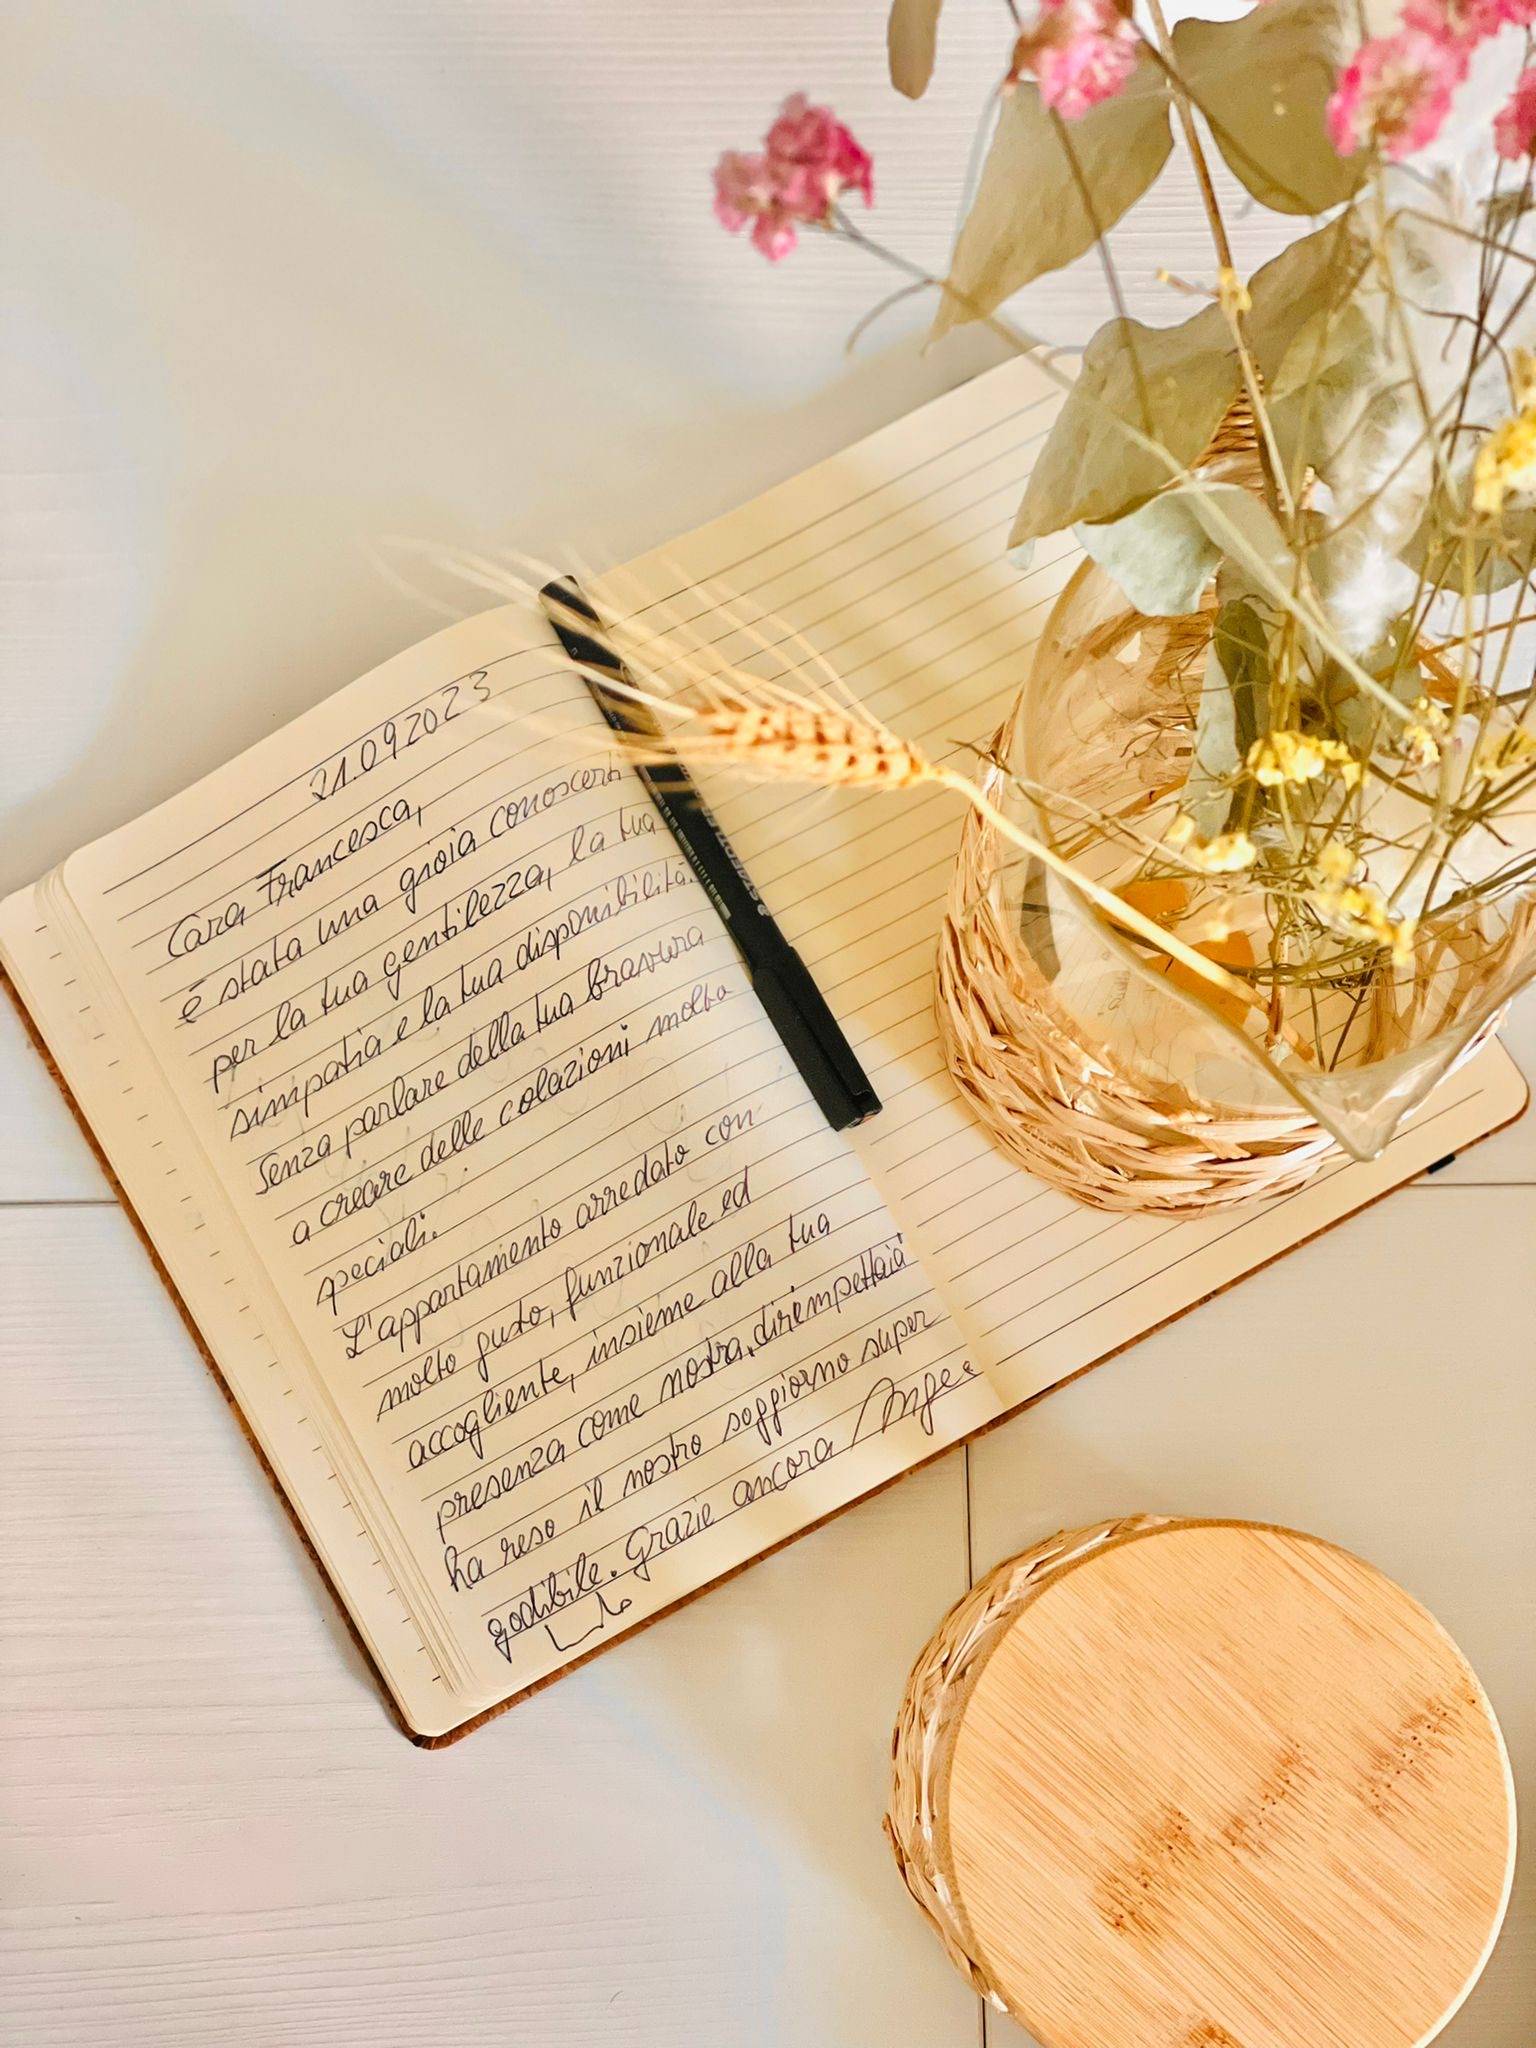 21.09.2023
Cara Francesca,
è stata una gioia conoscerti
per la tua gentilezza, la tua
simpatia e la tua disponibilità.
Senza parlare della tua bravura
a creare delle colazioni molto
speciali.
L'appartamento arredato con
molto gusto, funzionale ed
accogliente, insieme alla tua
presenza come nostra, dirimpettaia
ha reso il nostro soggiorno super
godibile. Grazie ancora